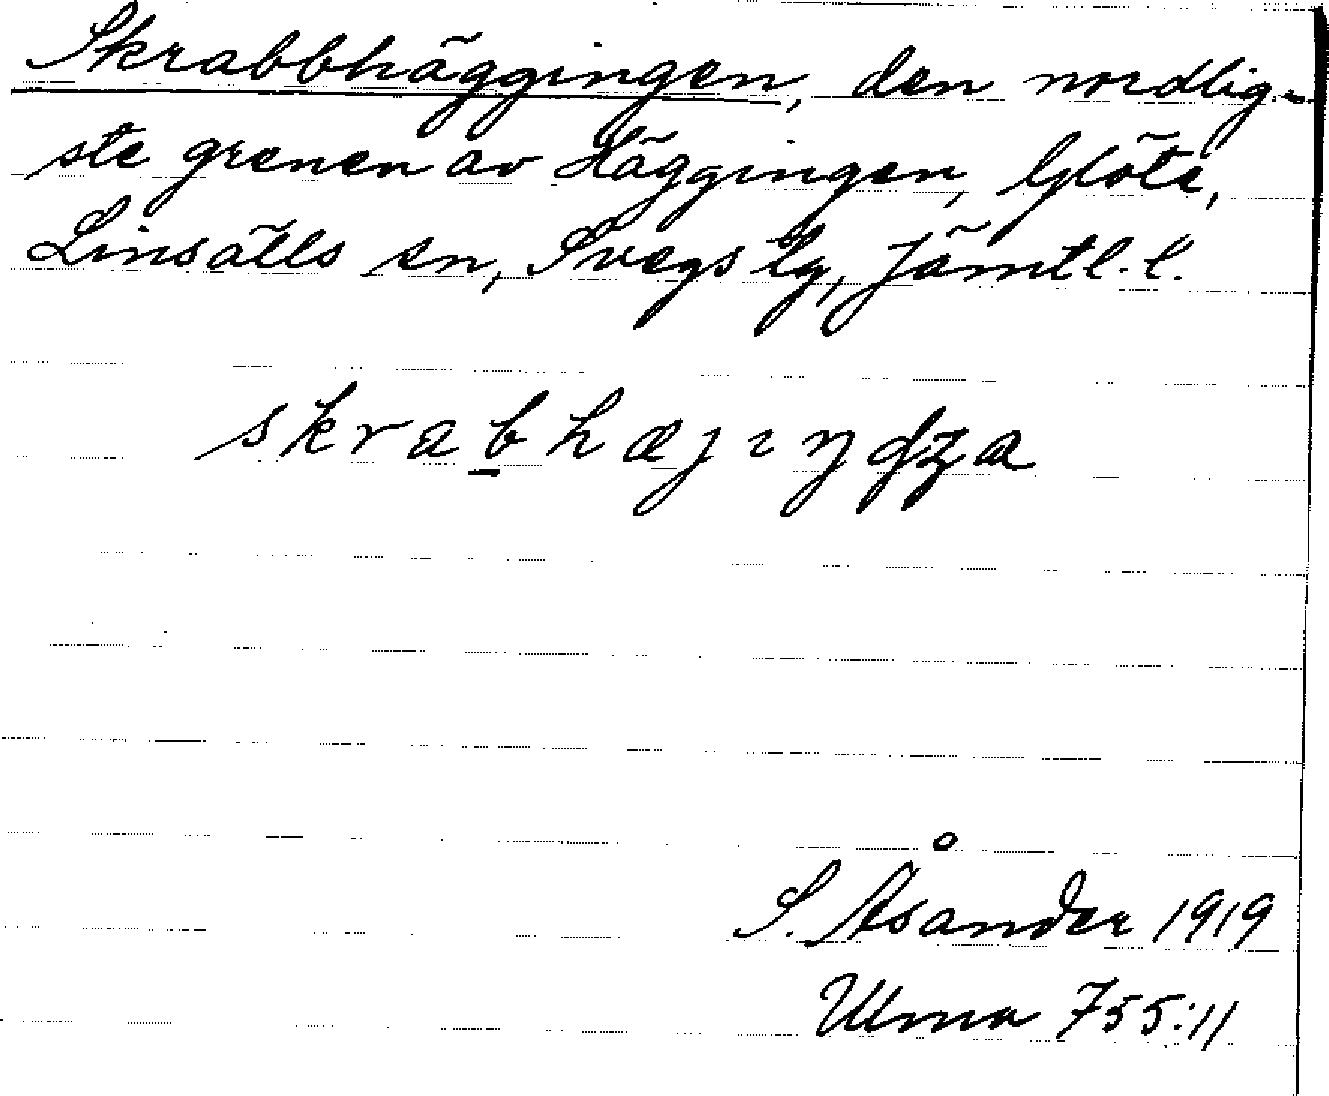 Skrabbhäggingen, den nordlig-
ste grenen av Häggingen, Glöte,
Linsälls sn, Svegs tg, Jämtl. l.
skrabhæȷıŋdʒa
S. Åsander 1919
Ulma 755:11